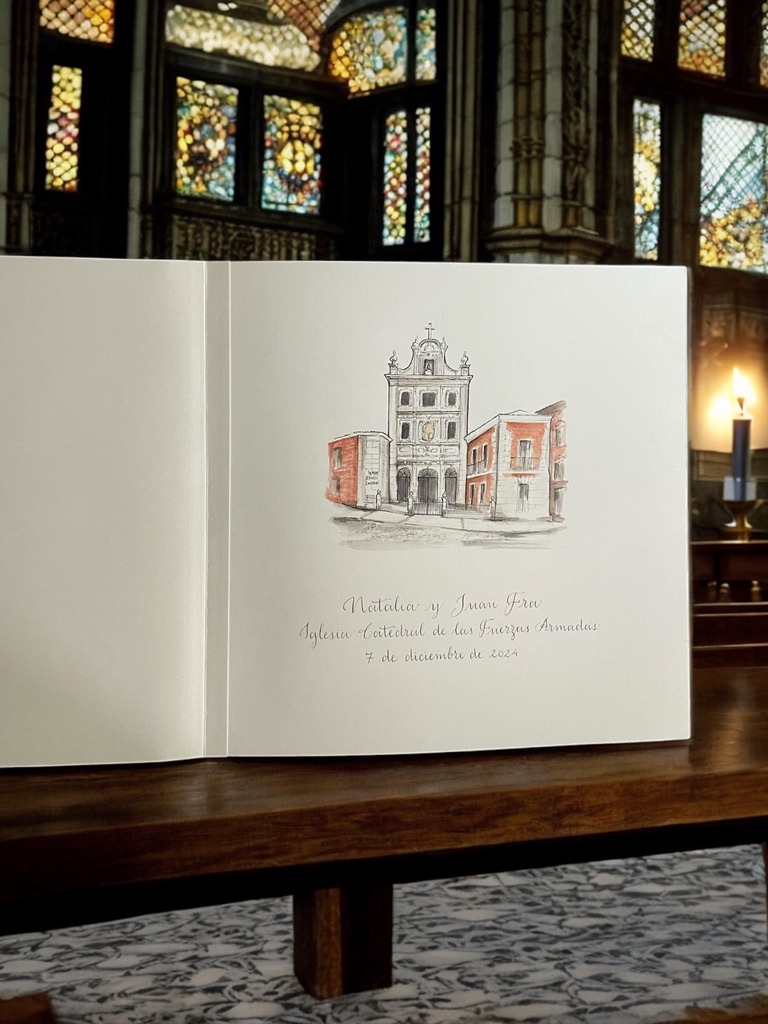 Natalia y Juan Fra
Iglesia Catedral de las Fuerzas Armadas
7 de diciembre de 2024